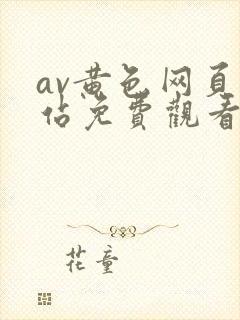 av黄色网页
佔免費觀看
花童